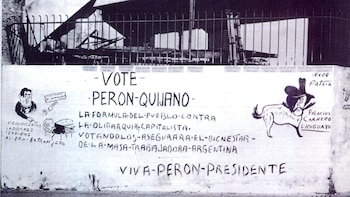 -VOTE-
PERON-QUIJANO-
LA FORMULA-DEL-PUEBLO-CONTRA
LA-OLIGARQUIA-CAPITALISTA.
VOTANDOLOS-ASEGURARA-EL-BIENESTAR-
DE-LA-MASA-TRABAJADORA-ARGENTINA
VIVA-PERON-PRESIDENTE
PALACIOS